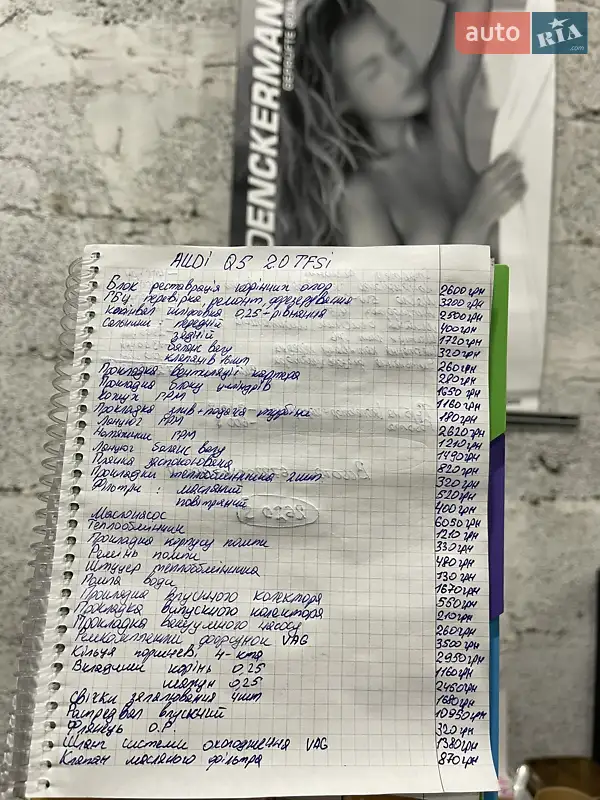 auto RIA.com
DENCKERMANN
GEPRÜFTE QUALI
AUDI Q5 2.0 TFSi
Блок реставрація корінних опор 2600 грн
ГБЦ перевірка ремонт, фрезерування 3200 грн
Колінвал шліфовка 0,25 - рівняння 2500 грн
Сальники: передній 400 грн
задній 1720 грн
баланс валу 320 грн
клапанів 16шт
Прокладка вентиляції картера 260 грн
Прокладка блоку циліндрів 280 грн
Кожух ГРМ 1650 грн
Прокладка злив + подача турбіни 1160 грн
Ланцюг ГРМ 180 грн
Натяжники ГРМ 2620 грн
Ланцюг баланс валу 1210 грн
Планка заспокоювача 1490 грн
Прокладки теплообмінника 2шт. 820 грн
Фільтри: масляний 320 грн
повітряний 520 грн
Маслонасос 400 грн
Теплообмінник 6050 грн
Прокладка корпусу помпи 1210 грн
Ремінь помпи 330 грн
Штуцер теплообмінника 480 грн
Помпа води 730 грн
Прокладка впускного колектора 1670 грн
Прокладка випускного колектора 560 грн
Прокладка вакуумного насосу 210 грн
Ремкомплект форсунок VAG 260 грн
Кільця поршневі 4-кта 3500 грн
Вкладиші корінь 0,25 2950 грн
шатун 0,25 1460 грн
Свічки запалювання 4шт 2460 грн
Распредвал впускний 1680 грн
Фланець О.Р. 10950 грн
320 грн
Шланг системи охолодження VAG 1380 грн
Клапан масляного фільтра 870 грн